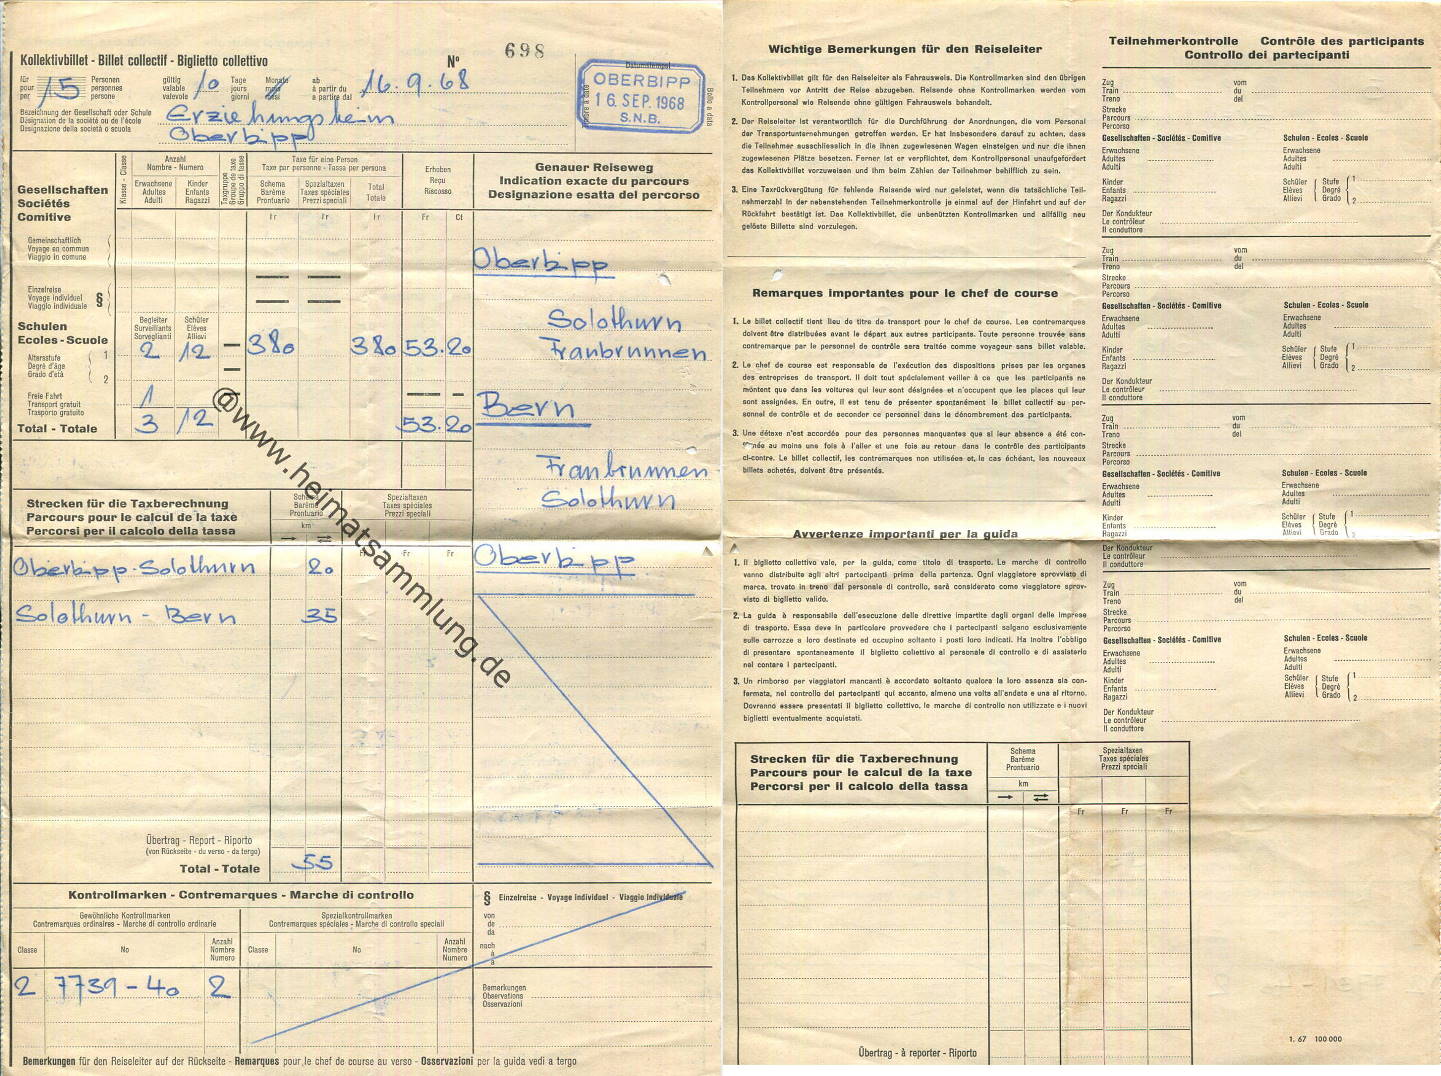 698
Kollektivbillet - Billet collectif - Biglietto collettivo
No
Datumstempel
für pour per
15
Personen personnes persone
gültig valable valevole
10
Tage jours giorni
Monate mois mesi
ab à partir du a partire dal
16.9.68
OBERBIPP
16. SEP. 1968
S.N.B.
Bollo a data
Bezeichnung der Gesellschaft oder Schule
Désignation de la société ou de l'école
Designazione della società o scuola
Erziehungsheim
Oberbipp
Gesellschaften
Sociétés
Comitive
Klasse - Classe
Anzahl
Nombre - Numero
Erwachsene Adultes Adulti
Kinder Enfants Ragazzi
Taxgruppe Groupe de taxe Gruppo di tasse
Taxe für eine Person
Taxe par personne - Tassa per persona
Schema Barème Prontuario
Spezialtaxen Taxes spéciales Prezzi speciali
Total Totale
Erhoben
Reçu
Riscosso
Fr Fr Fr Fr Ct
Genauer Reiseweg
Indication exacte du parcours
Designazione esatta del percorso
Gemeinschaftlich
Voyage en commun
Viaggio in comune
Einzelreise
Voyage individuel §
Viaggio individuale
Oberbipp
Solothurn
Fraubrunnen
Bern
Fraubrunnen
Solothurn
Oberbipp
Schulen
Ecoles - Scuole
Begleiter Surveillants Sorveglianti
Schüler Elèves Allievi
Altersstufe 1
Degré d'âge
Grado d'età 2
2 12 — 380 380 53.20
Freie Fahrt
Transport gratuit
Trasporto gratuito
1
Total - Totale
3 12 53.20
Strecken für die Taxberechnung
Parcours pour le calcul de la taxe
Percorsi per il calcolo della tassa
Schema Barème Prontuario
km
Spezialtaxen
Taxes spéciales
Prezzi speciali
Fr Fr Fr
Oberbipp - Solothurn 20
Solothurn - Bern 35
Übertrag - Report - Riporto
(von Rückseite - du verso - da tergo)
Total - Totale 55
Kontrollmarken - Contremarques - Marche di controllo
Gewöhnliche Kontrollmarken
Contremarques ordinaires - Marche di controllo ordinarie
Spezialkontrollmarken
Contremarques spéciales - Marche di controllo speciali
Classe No Anzahl Nombre Numero
Classe No Anzahl Nombre Numero
2 7739 - 40 2
§ Einzelreise - Voyage individuel - Viaggio individuale
von
de
da
nach
à
a
Bemerkungen
Observations
Osservazioni
Bemerkungen für den Reiseleiter auf der Rückseite - Remarques pour le chef de course au verso - Osservazioni per la guida vedi a tergo
@www.heimatsammlung.de
Wichtige Bemerkungen für den Reiseleiter
1. Das Kollektivbillet gilt für den Reiseleiter als Fahrausweis. Die Kontrollmarken sind den übrigen
Teilnehmern vor Antritt der Reise abzugeben. Reisende ohne Kontrollmarken werden vom
Kontrollpersonal wie Reisende ohne gültigen Fahrausweis behandelt.
2. Der Reiseleiter ist verantwortlich für die Durchführung der Anordnungen, die vom Personal
der Transportunternehmungen getroffen werden. Er hat insbesondere darauf zu achten, dass
die Teilnehmer ausschliesslich in die ihnen zugewiesenen Wagen einsteigen und nur die ihnen
zugewiesenen Plätze besetzen. Ferner ist er verpflichtet, dem Kontrollpersonal unaufgefordert
das Kollektivbillet vorzuweisen und ihm beim Zählen der Teilnehmer behilflich zu sein.
3. Eine Taxrückvergütung für fehlende Reisende wird nur geleistet, wenn die tatsächliche Teil-
nehmerzahl in der nebenstehenden Teilnehmerkontrolle je einmal auf der Hinfahrt und auf der
Rückfahrt bestätigt ist. Das Kollektivbillet, die unbenützten Kontrollmarken und allfällig neu
gelöste Billette sind vorzulegen.
Remarques importantes pour le chef de course
1. Le billet collectif tient lieu de titre de transport pour le chef de course. Les contremarques
doivent être distribuées avant le départ aux autres participants. Toute personne trouvée sans
contremarque par le personnel de contrôle sera traitée comme voyageur sans billet valable.
2. Le chef de course est responsable de l'exécution des dispositions prises par les organes
des entreprises de transport. Il doit tout spécialement veiller à ce que les participants ne
montent que dans les voitures qui leur sont désignées et n'occupent que les places qui leur
sont assignées. En outre, il est tenu de présenter spontanément le billet collectif au per-
sonnel de contrôle et de seconder ce personnel dans le dénombrement des participants.
3. Une détaxe n'est accordée pour des personnes manquantes que si leur absence a été con-
née au moins une fois à l'aller et une fois au retour dans le contrôle des participants
ci-contre. Le billet collectif, les contremarques non utilisées et, le cas échéant, les nouveaux
billets achetés, doivent être présentés.
Avvertenze importanti per la guida
1. Il biglietto collettivo vale, per la guida, come titolo di trasporto. Le marche di controllo
vanno distribuite agli altri partecipanti prima della partenza. Ogni viaggiatore sprovvisto di
marca, trovato in treno dal personale di controllo, sarà considerato come viaggiatore sprov-
visto di biglietto valido.
2. La guida è responsabile dell'esecuzione delle direttive impartite dagli organi delle imprese
di trasporto. Essa deve in particolare provvedere che i partecipanti salgano esclusivamente
sulle carrozze a loro destinate ed occupino soltanto i posti loro indicati. Ha inoltre l'obbligo
di presentare spontaneamente il biglietto collettivo al personale di controllo e di assisterlo
nel contare i partecipanti.
3. Un rimborso per viaggiatori mancanti è accordato soltanto qualora la loro assenza sia con-
fermata, nel controllo dei partecipanti qui accanto, almeno una volta all'andata e una al ritorno.
Dovranno essere presentati il biglietto collettivo, le marche di controllo non utilizzate e i nuovi
biglietti eventualmente acquistati.
Strecken für die Taxberechnung
Parcours pour le calcul de la taxe
Percorsi per il calcolo della tassa
Schema
Barème
Prontuario
km
Spezialtaxen
Taxes spéciales
Prezzi speciali
Fr Fr Fr
Übertrag - à reporter - Riporto
Teilnehmerkontrolle Contrôle des participants
Controllo dei partecipanti
Zug vom
Train du
Treno del
Strecke
Parcours
Percorso
Gesellschaften - Sociétés - Comitive Schulen - Ecoles - Scuole
Erwachsene Erwachsene
Adultes Adultes
Adulti Adulti
Kinder Schüler Stufe 1
Enfants Elèves Degré
Ragazzi Allievi Grado 2
Der Kondukteur
Le contrôleur
Il conduttore
Zug vom
Train du
Treno del
Strecke
Parcours
Percorso
Gesellschaften - Sociétés - Comitive Schulen - Ecoles - Scuole
Erwachsene Erwachsene
Adultes Adultes
Adulti Adulti
Kinder Schüler Stufe 1
Enfants Elèves Degré
Ragazzi Allievi Grado 2
Der Kondukteur
Le contrôleur
Il conduttore
Zug vom
Train du
Treno del
Strecke
Parcours
Percorso
Gesellschaften - Sociétés - Comitive Schulen - Ecoles - Scuole
Erwachsene Erwachsene
Adultes Adultes
Adulti Adulti
Kinder Schüler Stufe 1
Enfants Elèves Degré
Ragazzi Allievi Grado 2
Der Kondukteur
Le contrôleur
Il conduttore
Zug vom
Train du
Treno del
Strecke
Parcours
Percorso
Gesellschaften - Sociétés - Comitive Schulen - Ecoles - Scuole
Erwachsene Erwachsene
Adultes Adultes
Adulti Adulti
Kinder Schüler Stufe 1
Enfants Elèves Degré
Ragazzi Allievi Grado 2
Der Kondukteur
Le contrôleur
Il conduttore
1. 67 100 000